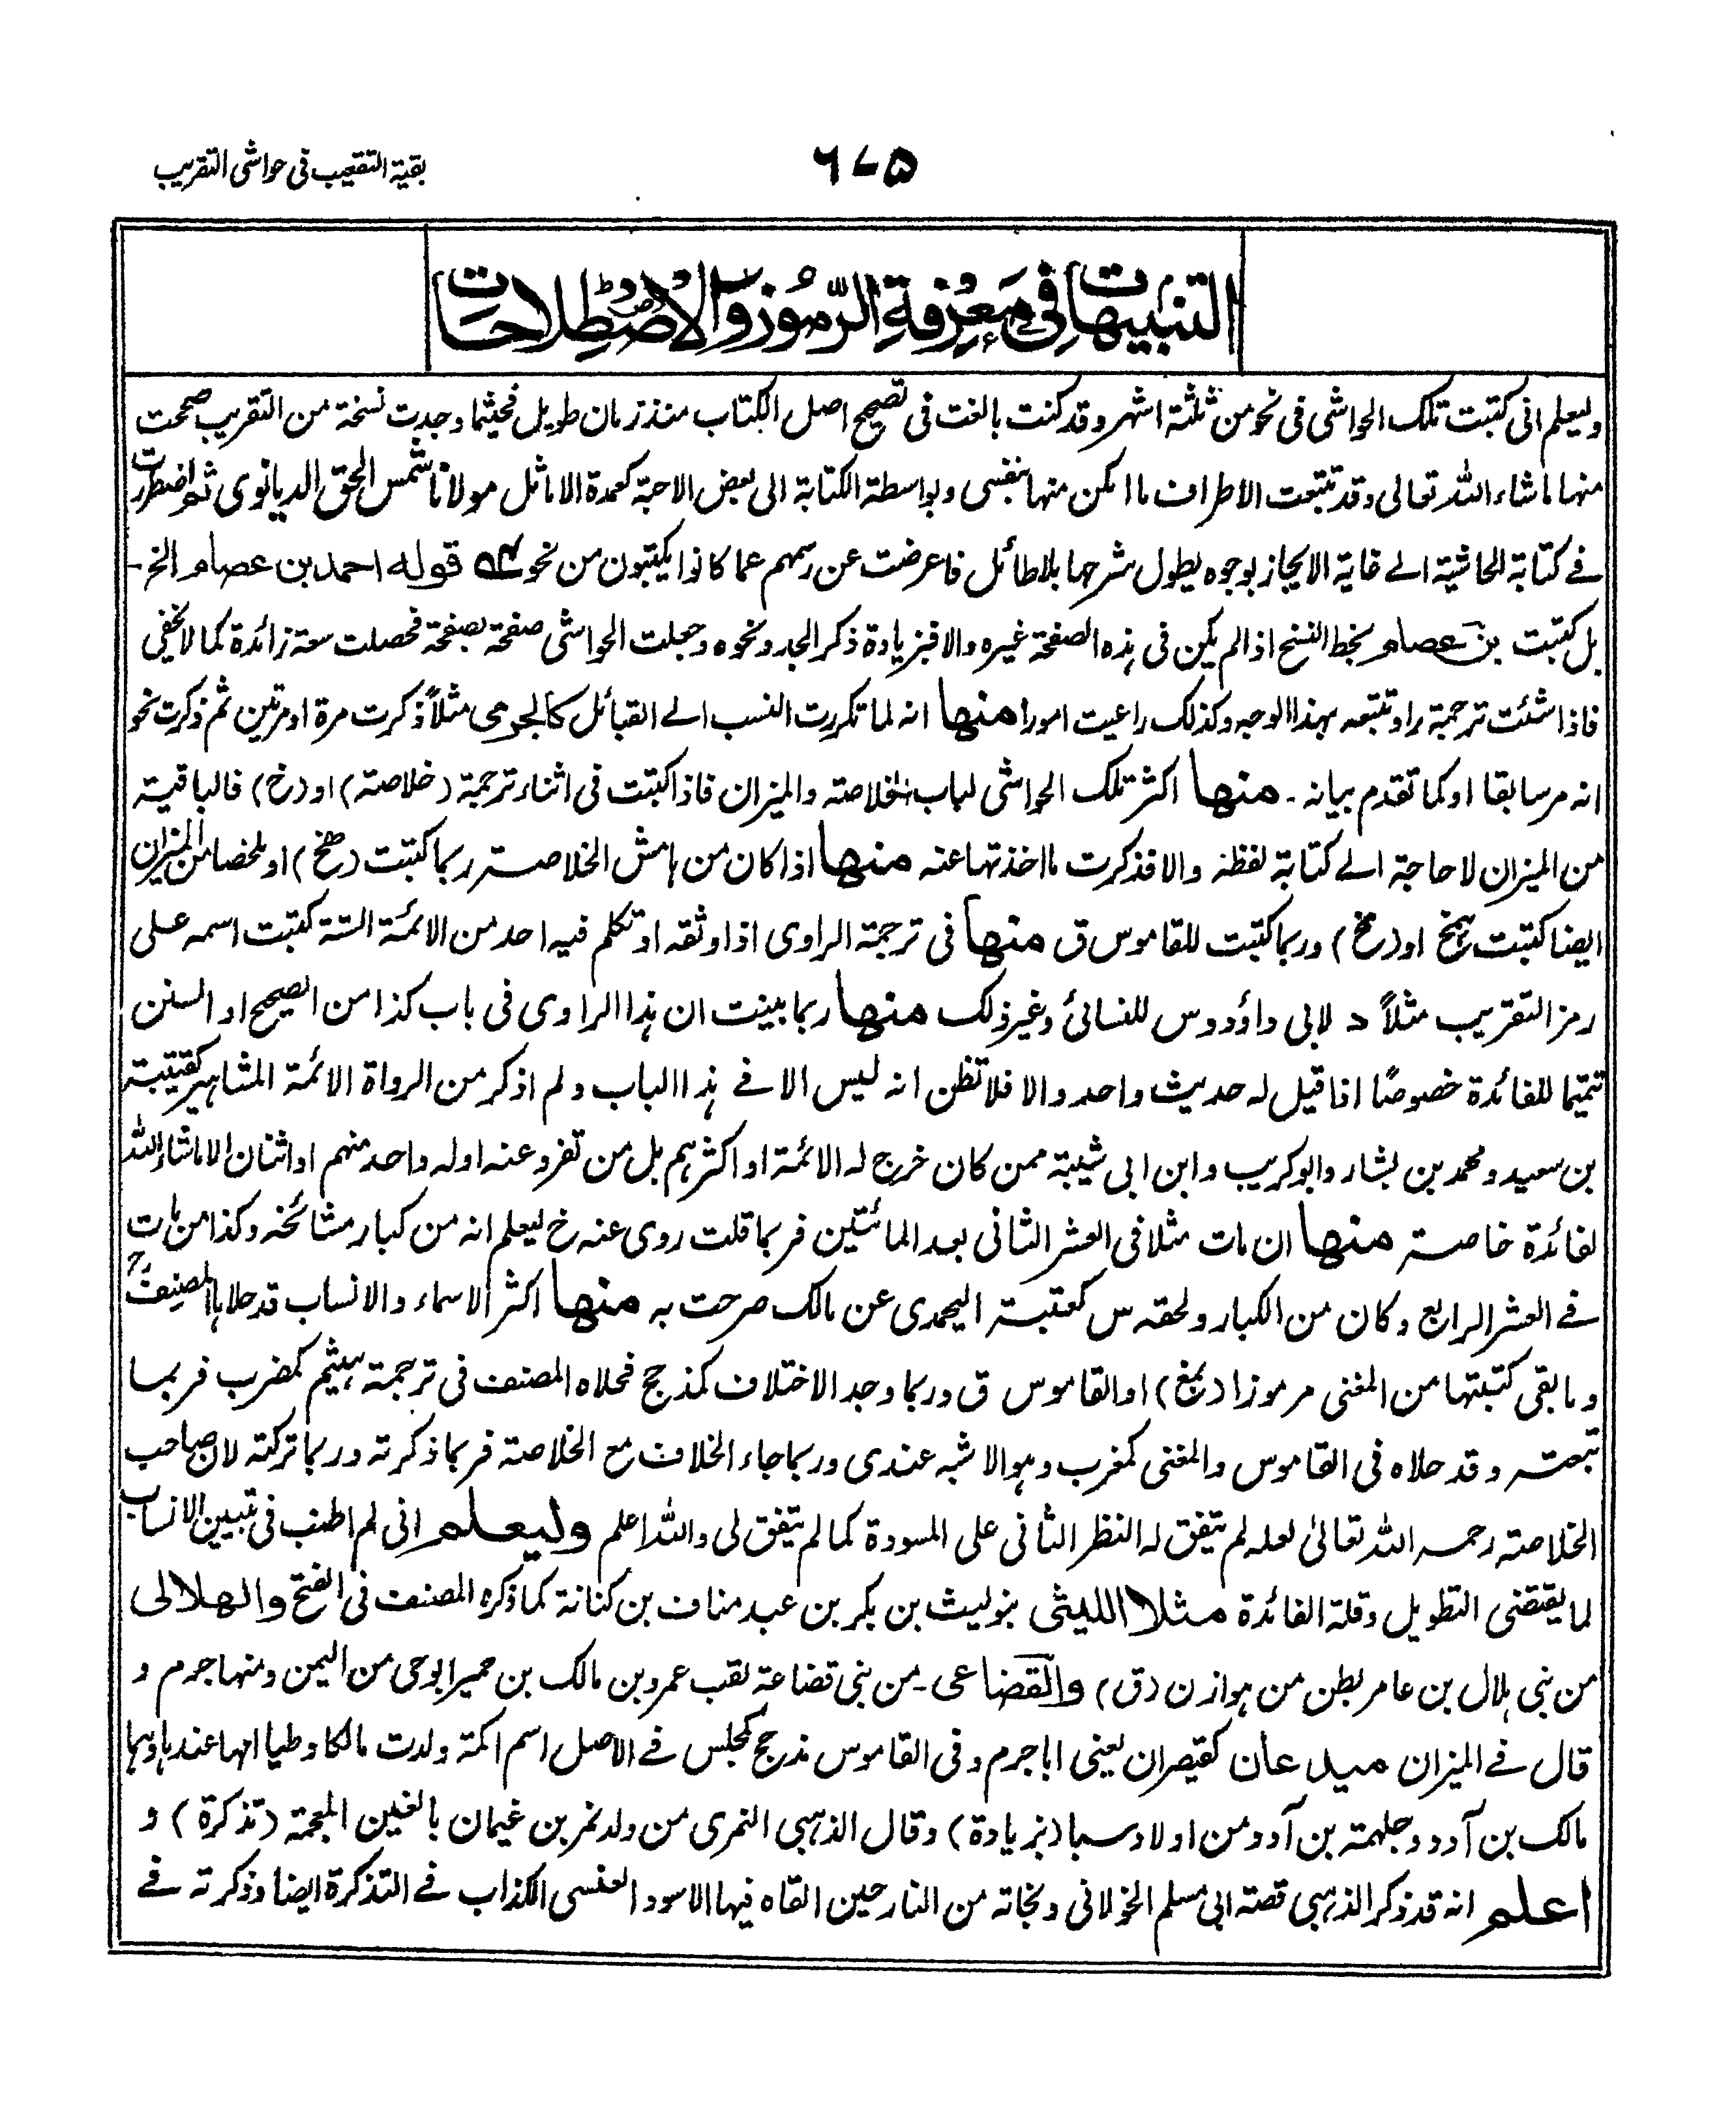 بقية التقعيب في حواشي التقريب
۶۷۵
التنبيهات في معرفة الرموز والاصطلاحات
وليعلم اني كتبت تلك الحواشي في نحو من ثلثة اشهر وقد كنت بالغت في تصحيح اصل الكتاب منذ زمان طويل فحيثما وجدت نسخة من التقريب صححت
منها ما شاء الله تعالى وقد تتبعت الاطراف ما امكن منها بنفسي وبواسطة الكتابة الى بعض الاحبة كعمدة الاماثل مولانا شمس الحق الديانوي ثم اضطررت
في كتابة الحاشية الى غاية الايجاز بوجوه يطول شرحها بلا طائل فاعرضت عن رسمهم عما كانوا يكتبون من نحو قوله احمد بن عصام الخ -
بل كتبت بن عصام بخط النسخ اذا لم يكن في هذه الصفحة غيره والا فبزيادة ذكر الجد ونحوه وجعلت الحواشي صفحة بصفحة فحصلت سعة زائدة كما لا يخفى
فاذا شئت ترجمة راو تتبعه بهذا الوجه وكذلك راعيت امورا منها انه لما تكررت النسب الى القبائل كالجرمي مثلاً ذكرت مرة او مرتين ثم ذكرت نحو
انه مر سابقا او كما تقدم بيانه - منها اكثر تلك الحواشي لباب الخلاصة والميزان فاذا كتبت في اثناء ترجمة (خلاصة) او (خ) فالباقية
من الميزان لا حاجة الى كتابة لفظه والا فذكرت ما اخذتها عنه منها اذا كان من هامش الخلاصة ربما كتبت (هخ) او ملخصا من الميزان
ايضا كتبت او (مخ) وربما كتبت للقاموس ق منها في ترجمة الراوي اذا وثقه او تكلم فيه احد من الائمة الستة كتبت اسمه على
رمز التقريب مثلاً د لابي داؤد وس للنسائي وغير ذلك منها ربما بينت ان هذا الراوي في باب كذا من الصحيح او السنن
تتميما للفائدة خصوصًا اذا قيل له حديث واحد والا فلا تظن انه ليس الا في هذا الباب ولم اذكر من الرواة الائمة المشاهير كقتيبة
بن سعيد ومحمد بن بشار وابو كريب وابن ابي شيبة ممن كان خرج له الائمة او اكثرهم بل من تفرد عنه اوله واحد منهم او اثنان الا ما شاء الله
لفائدة خاصة منها ان مات مثلا في العشر الثاني بعد المائتين فربما قلت روى عنه خ ليعلم انه من كبار مشائخه وكذا من مات
في العشر الرابع وكان من الكبار ولحقه س كعتبة اليحمدي عن مالك صرحت به منها اكثر الاسماء والانساب قد حلاها المصنف
وما بقي كتبتها من المغني مرموزا (بمغ) او القاموس ق وربما وجد الاختلاف كمذحج فحلاه المصنف في ترجمة هيثم كمضرب فربما
تبعته وقد حلاه في القاموس والمغني كمغرب وهو الاشبه عندي وربما جاء الخلاف مع الخلاصة فربما ذكرته وربما تركته لان صاحب
الخلاصة رحمه الله تعالى لعله لم يتفق له النظر الثاني على المسودة كما لم يتفق لي والله اعلم وليعلم اني لم اطنب في تبيين الانساب
لما يقتضي التطويل وقلة الفائدة مثلا الليثي بنو ليث بن بكر بن عبد مناف بن كنانة كما ذكره المصنف في الفتح والهلالي
من بني هلال بن عامر بطن من هوازن (ق) والقضاعي - من بني قضاعة لقب عمرو بن مالك بن حمير ابو حي من اليمن ومنها جرم و
قال في الميزان ميدعان كقيصران يعني ابا جرم وفي القاموس مذحج كمجلس في الاصل اسم اكمة ولدت مالكا وطيا امها عندها وهما
مالك بن آدد وجلهمة بن آدد من اولاد سبا (بزيادة) وقال الذهبي النمري من ولد نمر بن غيمان بالغين المعجمة (تذكرة) و
اعلم انه قد ذكر الذهبي قصة ابي مسلم الخولاني ونجاته من النار حين القاه فيها الاسود العنسي الكذاب في التذكرة ايضا وذكرته في